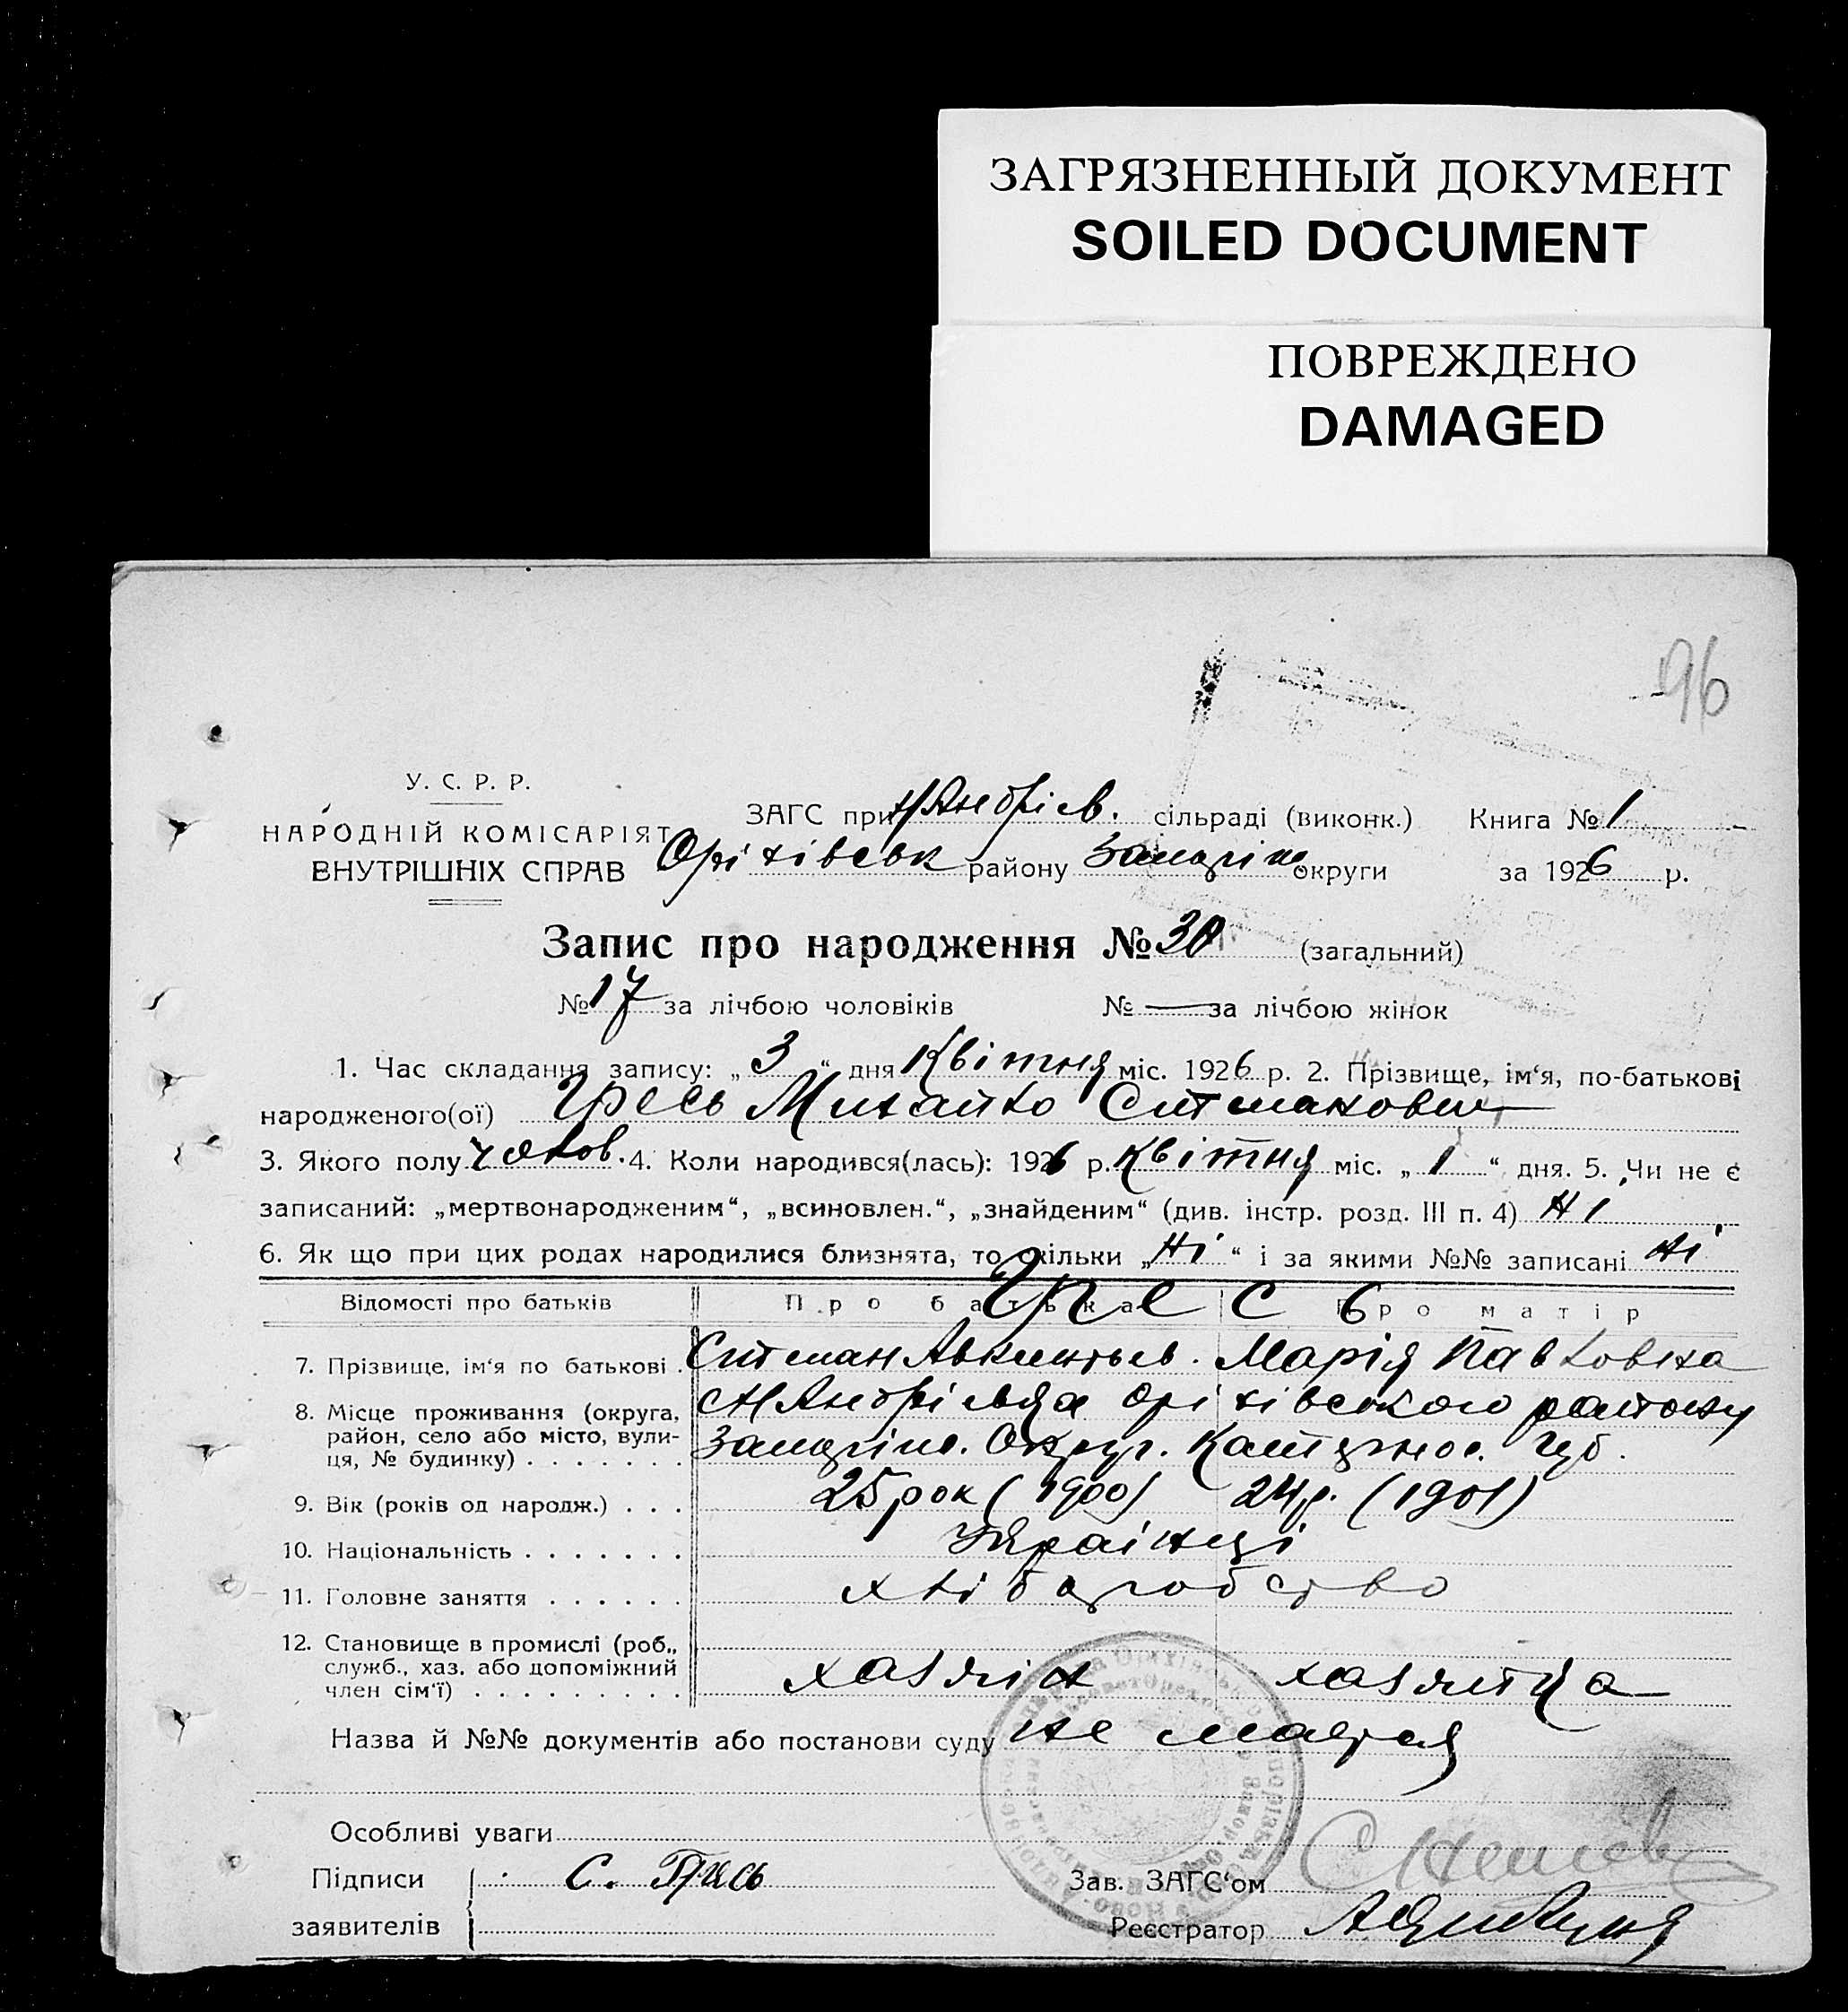 ЗАГРЯЗНЕННЫЙ ДОКУМЕНТ
SOILED DOCUMENT
ПОВРЕЖДЕНО
DAMAGED
96
У. С. Р. Р.
НАРОДНІЙ КОМІСАРІЯТ
ВНУТРІШНІХ СПРАВ
ЗАГС при Н Андрієв. сільраді (виконк.) Книга № 1
Оріхівськ району Запоріж округи за 1926 р.
Запис про народження № 30 (загальний)
№ 17 за лічбою чоловіків № — за лічбою жінок
1. Час складання запису: „ 3 “ дня Квітня міс. 1926 р. 2. Прізвище, ім‘я, по-батькові
народженого(ої) Гресь Михайло
3. Якого полу чолов. 4. Коли народився(лась): 1926 р. Квітня міс. „ 1 “ дня. 5. Чи не є
записаний: „мертвонародженим“, „всиновлен.“, „знайденим“ (див. інстр. розд. III п. 4) Ні
6. Як що при цих родах народилися близнята, то скільки „ Ні “ і за якими №№ записані Ні
Відомості про батьків Про батька Про матір
Гресь
7. Прізвище, ім‘я по батькові . Марія Павловна
8. Місце проживання (округа, Н Андрієвка Оріхівського району
район, село або місто, вули- Запоріж. Округ. Катеринос. Губ.
ця, № будинку) . . . . . . .
9. Вік (років од народж.) . . . 25 рок (1900) 24 р. (1901)
10. Національність . . . . . . . Українці
11. Головне заняття . . . . . . хліборобство
12. Становище в промислі (роб.,
служб., хаз. або допоміжний
член сім‘ї) . . . . . . . . . хазяїн хазяйка
Назва й №№ документів або постанови суду не мається
Особливі уваги
Підписи С. Гресь Зав. ЗАГС‘ом
заявителів Реєстратор